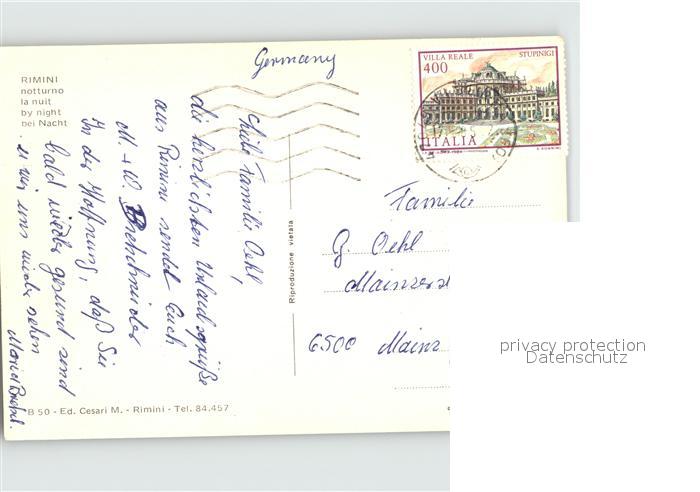 RIMINI
notturno
la nuit
by night
bei Nacht
Germany
VILLA REALE STUPINIGI
400
ITALIA
Liebe Familie Oehl,
die herzlichsten Urlaubsgrüße
aus Rimini sendet Euch
M. + W.
In der Hoffnung, daß Sie
bald wieder gesund sind
u. wir uns wieder sehen
Familie
G. Oehl
Mainzerst
6500 Mainz
Riproduzione vietata
B 50 - Ed. Cesari M. - Rimini - Tel. 84.457
privacy protection
Datenschutz